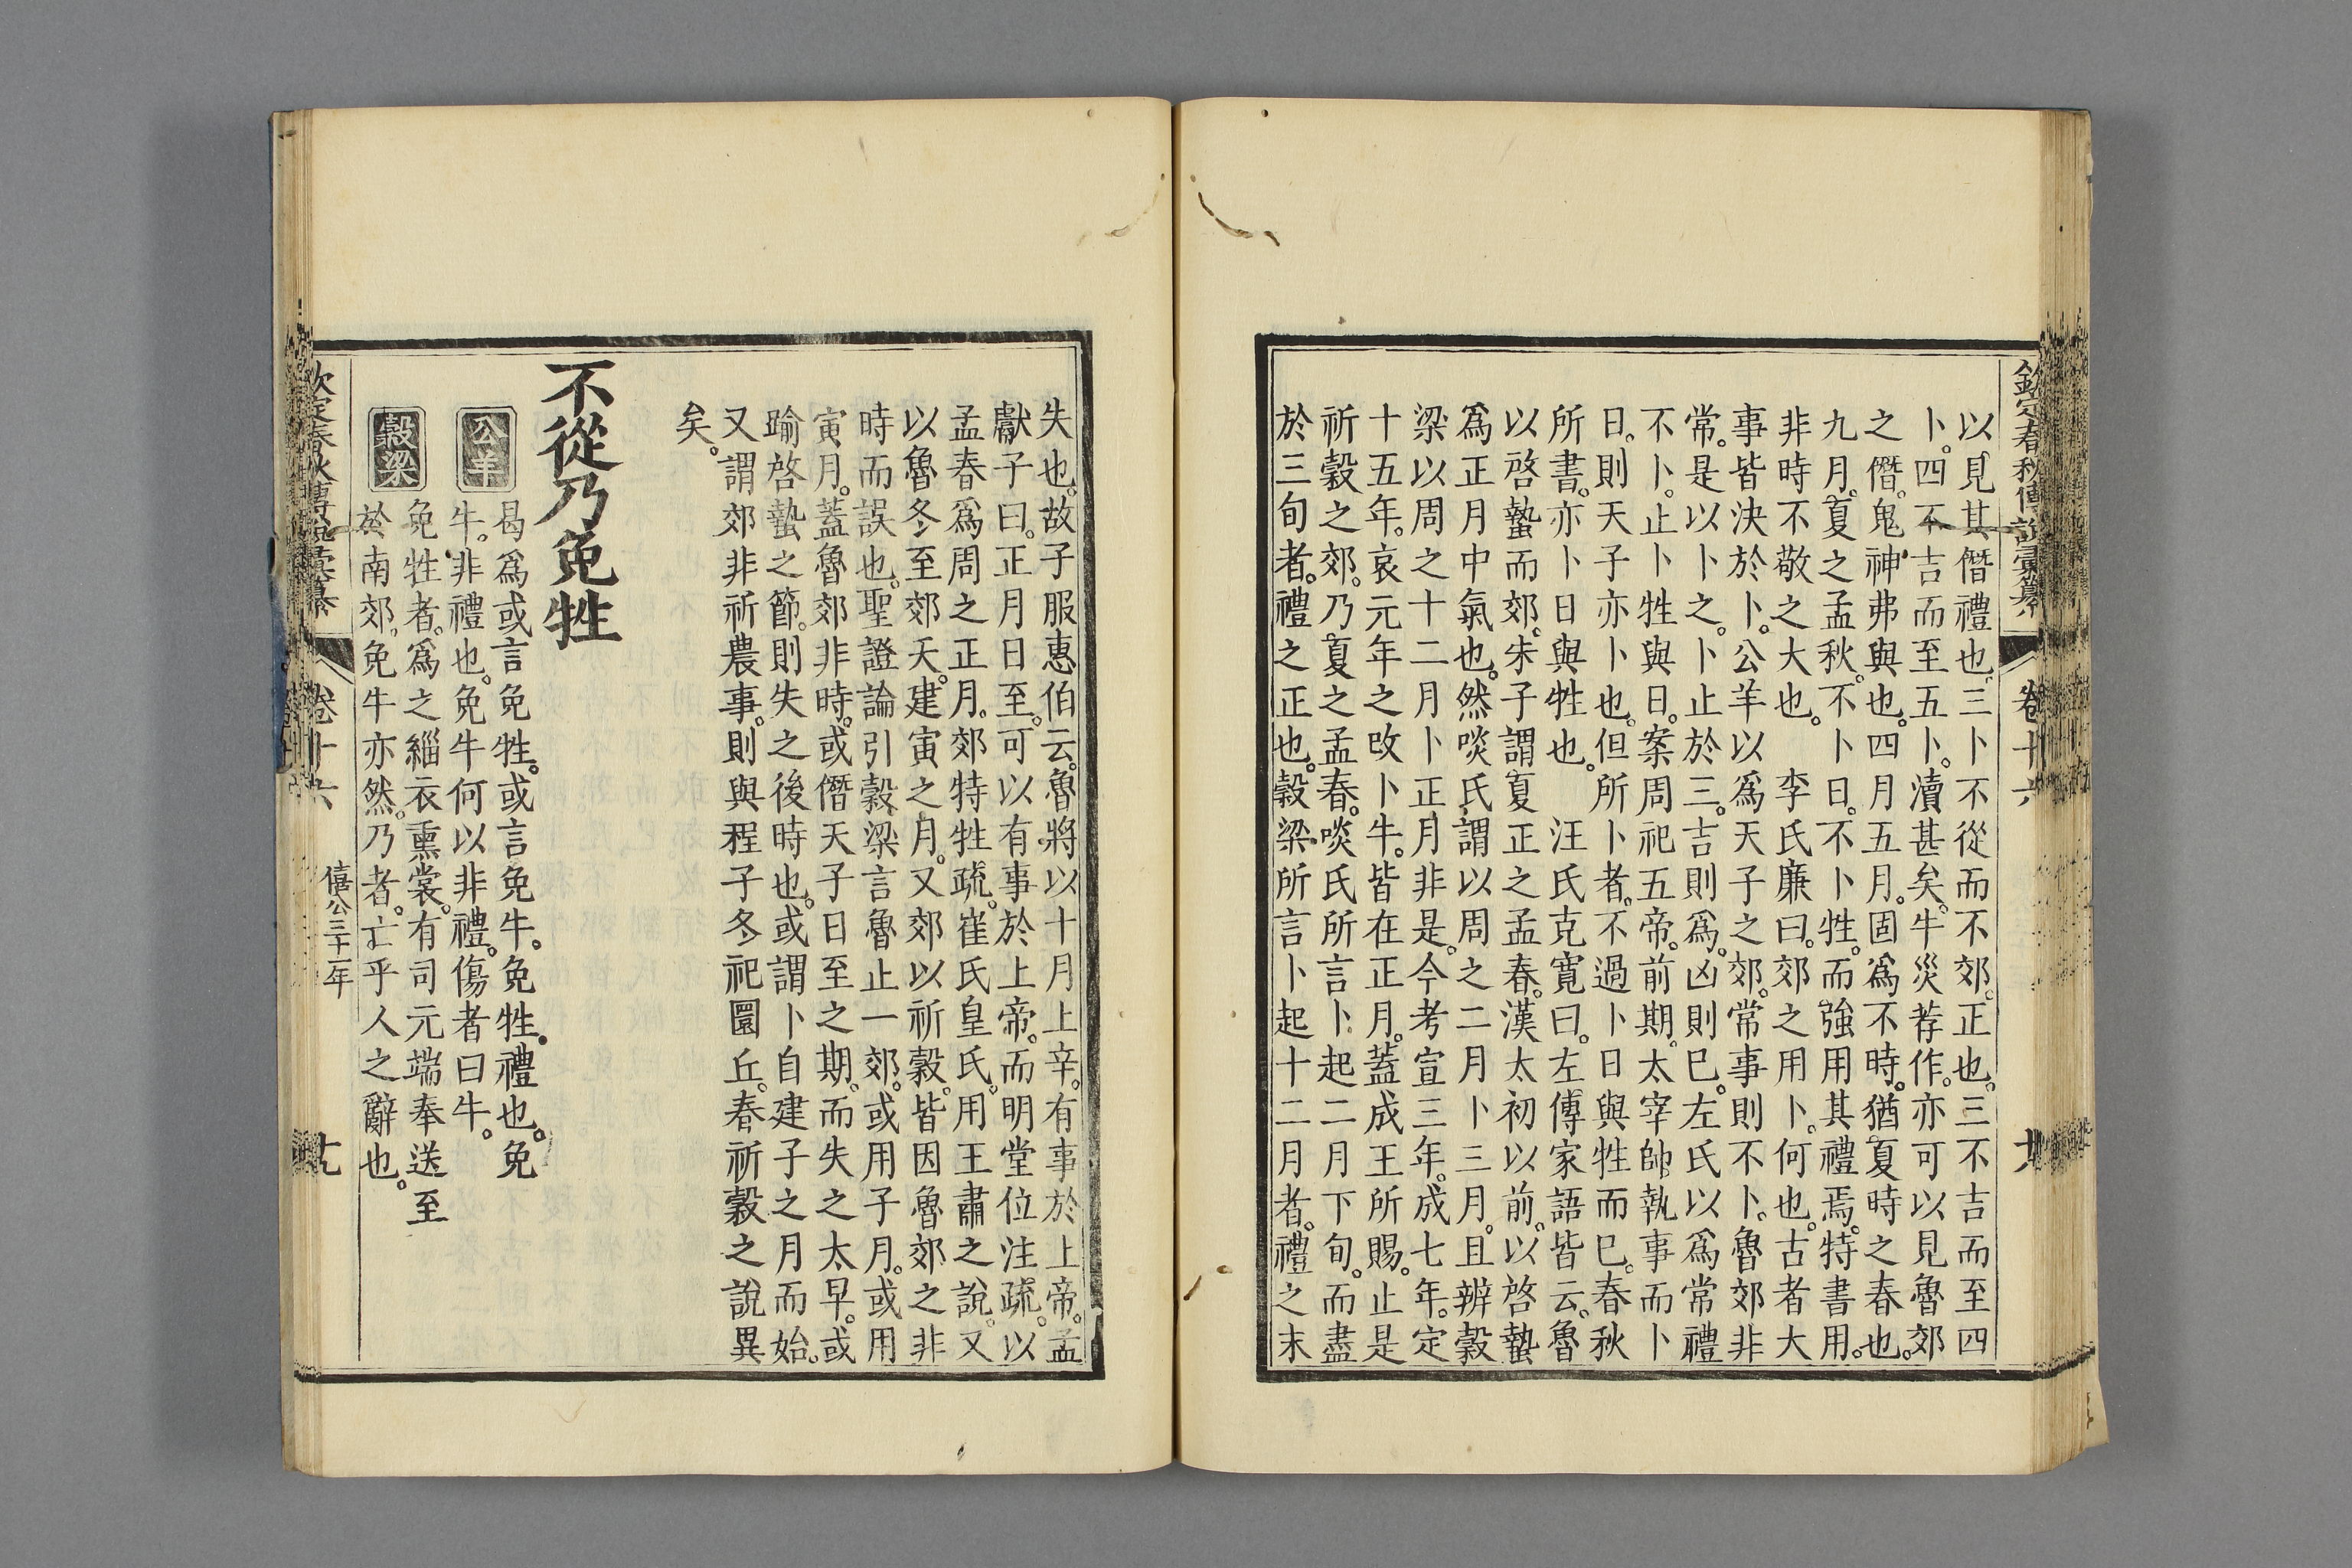 欽定春秋傳說彙纂 卷十六
以見其僭禮也。三卜不從而不郊。正也。三不吉而至四
卜。四不吉而至五卜。瀆甚矣。牛災荐作。亦可以見魯郊
之僭。鬼神弗與也。四月五月。固爲不時。猶夏時之春也。
九月。夏之孟秋。不卜日。不卜牲。而強用其禮焉。特書用。
非時不敬之大也。 李氏廉曰。郊之用卜。何也。古者大
事皆決於卜。公羊以爲天子之郊。常事則不卜。魯郊非
常。是以卜之。卜止於三。吉則爲。凶則已。左氏以爲常禮
不卜。止卜牲與日。案周祀五帝。前期。太宰帥執事而卜
日。則天子亦卜也。但所卜者。不過卜日與牲而已。春秋
所書。亦卜日與牲也。 汪氏克寬曰。左傳家語皆云。魯
以啓蟄而郊。朱子謂夏正之孟春。漢太初以前。以啓蟄
爲正月中氣也。然啖氏謂以周之二月卜三月。且辨穀
梁以周之十二月卜正月非是。今考宣三年。成七年。定
十五年。哀元年之改卜牛。皆在正月。蓋成王所賜。止是
祈穀之郊。乃夏之孟春。啖氏所言卜。起二月下旬。而盡
於三旬者。禮之正也。穀梁所言卜起十二月者。禮之末
失也。故子服惠伯云。魯將以十月上辛。有事於上帝。孟
獻子曰。正月日至。可以有事於上帝。而明堂位注疏。以
孟春爲周之正月。郊特牲疏。崔氏皇氏。用王肅之說。又
以魯冬至郊天。建寅之月。又郊以祈穀。皆因魯郊之非
時而誤也。聖證論引穀梁言魯止一郊。或用子月。或用
寅月。蓋魯郊非時。或僭天子日至之期。而失之太早。或
踰啓蟄之節。則失之後時也。或謂卜自建子之月而始。
又謂郊非祈農事。則與程子冬祀圜丘。春祈穀之說異
矣。
不從乃免牲
公羊 曷爲或言免牲。或言免牛。免牲。禮也。免
牛。非禮也。免牛何以非禮。傷者曰牛。
穀梁 免牲者。爲之緇衣熏裳。有司元端奉送至
於南郊。免牛亦然。乃者。亡乎人之辭也。
欽定春秋傳說彙纂 卷十六 僖公三十一年